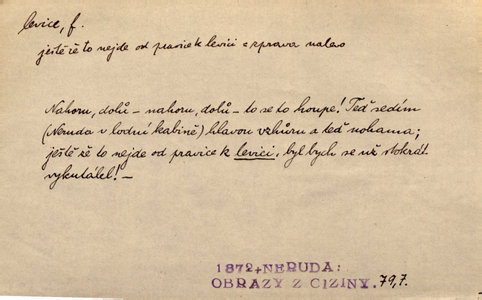 levice, f.
ještě že to nejde od pravice k levici = zprava nalevo
Nahoru, dolů – nahoru, dolů – to se to houpe! Teď sedím
(Neruda v lodní kabině) hlavou vzhůru a teď nohama;
ještě že to nejde od pravice k levici, byl bych se už stokrát
vykutálel! –
1872+NERUDA:
OBRAZY Z CIZINY. 79,7.